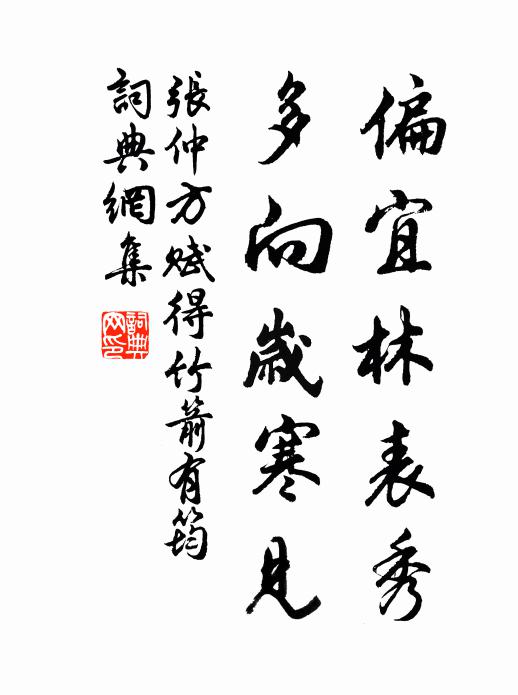 偏宜林表秀
多向歲寒見
張仲方賦得竹箭有筠
詞典網集
詞典網印